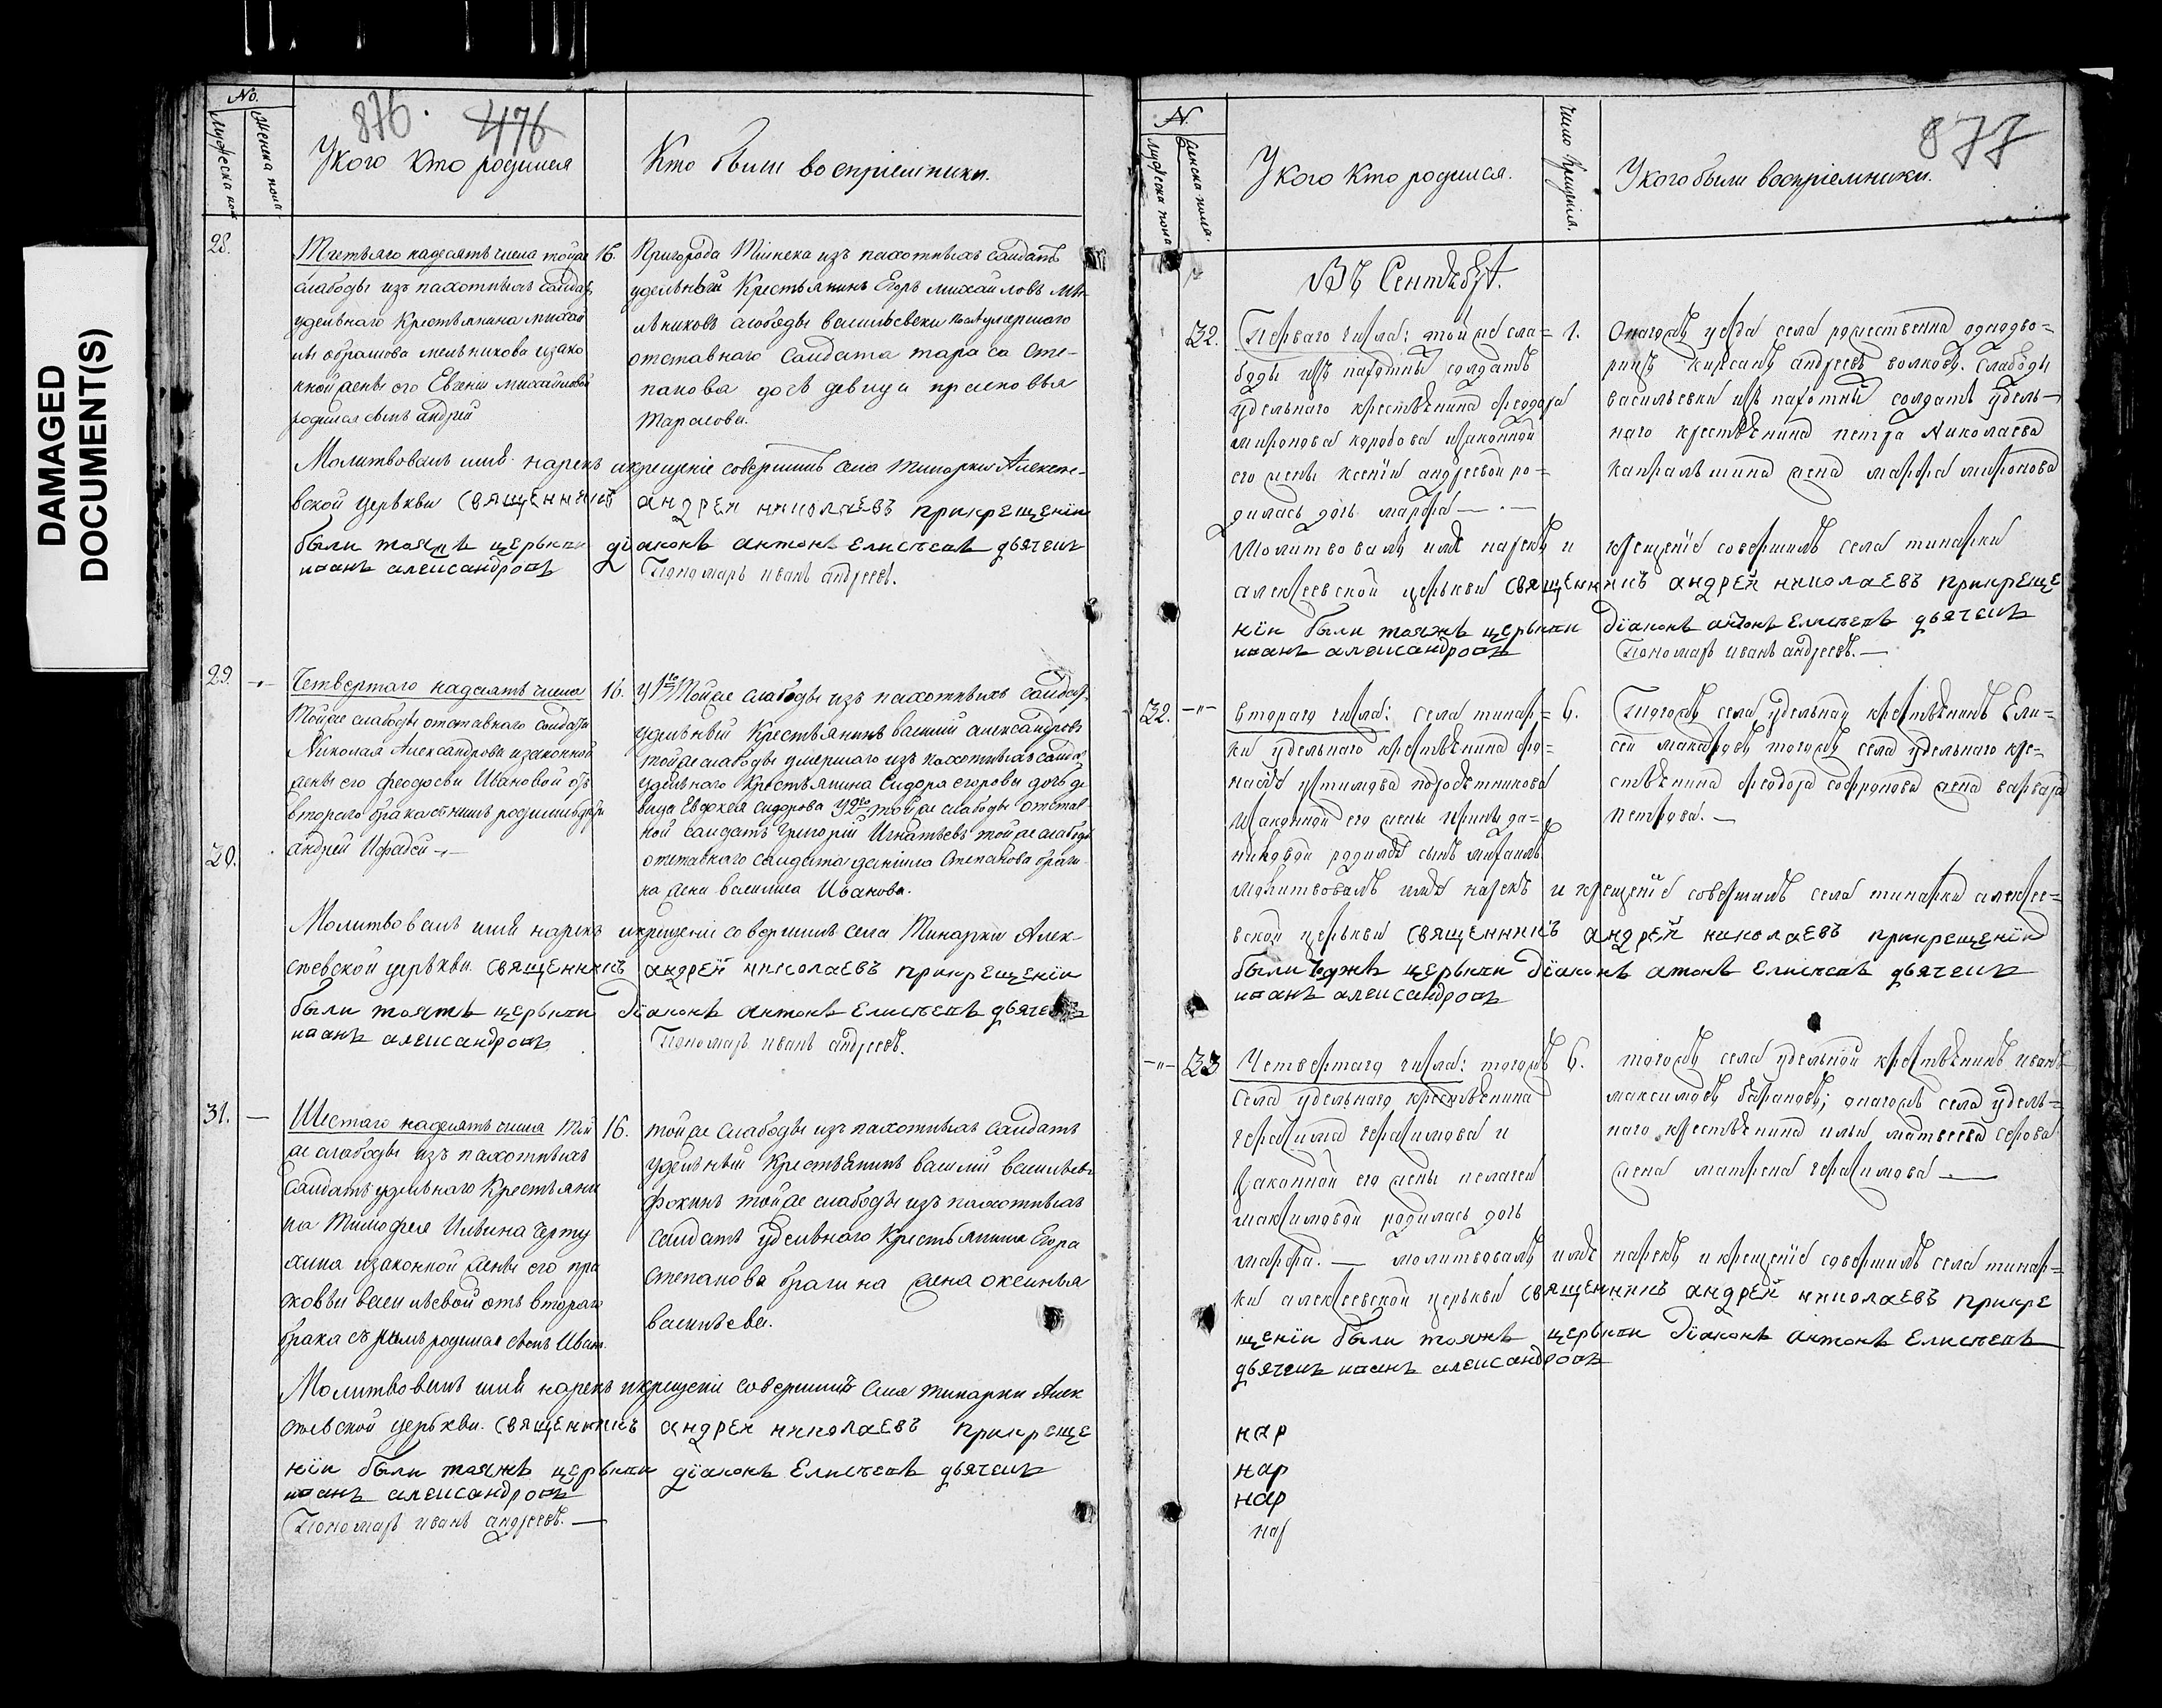 DAMAGED
DOCUMENT(S)
No.
Мужеска пола
Женска пола
876. 476
У кого кто родился
Кто были воспріемники.
28.
Третьяго надесять числа тойже
слабоды изъ пахотныхъ солдатъ
удельнаго Крестьянина михаи
ла абрамова мельникова изако
нной жены его Евгеніи михайловой
родился сынъ андрей
16.
Пригорода Тіинска изъ пахотныхъ салдатъ
удельный Крестьянинъ Егоръ михайловъ ме-
льниковъ слободы васильевки умершаго
отставнаго Салдата тараса Сте-
панова дочь девица прасковья
тарасова.
Молитвовалъ имя нарекъ икрещеніе совершилъ села тинарки Алексе-
вской церькви священникъ андрей николаевъ прикрещеніи
были тояжъ церькви діаконъ антонъ Елисѣевъ дьячекъ
иванъ александровъ Пономарь иванъ андреевъ.
29.
20.
Четвертаго надесять числа
Тойже слабоды отставнаго Солдата
Николая Александрова изаконной
жены его феодосьи Ивановой отъ
втораго брака съ нимъ родились
андрей Ифадей
16.
у 1го Тойже слабоды изъ пахотныхъ салдатъ
удельный Крестьянинъ василій александровъ
тойже слабоды умершаго изъ пахотныхъ салда
удельнаго Крестьянина Сидора егорова дочь де
вица Евфкея сидорова У 2го тойже слабоды отстав
ной салдатъ григорій Игнатьевъ тойже слабоды
отставнаго салдата данiила Степанова браги
на жена василиса Иванова.
Молитвовалъ имя нарекъ икрещеніе совершилъ села Тинарки Алек-
сеевской церькви. священникъ андрей николаевъ прикрещеніи
были тояжъ церькви діаконъ антонъ Елисѣевъ дьячекъ
иванъ александровъ Пономарь иванъ андреевъ.
31.
Шестаго надесять числа той
же слабоды изъ пахотныхъ
Салдатъ удельнаго Крестьяни
на Тимофея Ильина
изаконной жены его пра
сковьи васильевой отъ втораго
брака съ нимъ родился сынъ Иванъ.
16.
тойже слабоды изъ пахотныхъ салдатъ
удельный Крестьянинъ василій васильевъ
фокинъ тойже слабоды изъ пахотныхъ
Салдатъ удельнаго Крестьянина Егора
степанова брагина жена оксинья
васильева.
Молитвовалъ имя нарекъ икрещеніе совершилъ села тинарки Алек
сеевской церькви. священникъ андрей николаевъ прикреще
ніи были тояжъ церькви діаконъ Елисѣевъ дьячекъ
иванъ александровъ
Пономарь иванъ андреевъ.
N.
Мужеска пола
Женска пола.
У кого Кто родился.
Число Крещенія.
877
У кого были воспріемники.
Въ Сентябрѣ.
32.
Перваго числа: той же сла=
боды изъ пахотныхъ солдатъ
удельнаго крестьянина феодора
миронова коробова изаконной
его жены ксеніи андреевой ро=
дилась дочь марфа
1.
Онагожъ уезда села рожественна однодво=
рецъ кирсанъ андреевъ волковъ. слабоды
васильевки изъ пахотныхъ солдатъ удель-
наго крестьянина петра Николаева
жена марфа миронова
Молитвовалъ имя нарекъ и крещеніе совершилъ села тинарки
алексеевской церькви священникъ андрей николаевъ прикреще
ніи были тояжъ церькви діаконъ антонъ Елисѣевъ дьячекъ
иванъ александровъ Пономарь иванъ андреевъ.
32.
втораго числа: села тинар=
ки удельнаго крестьянина
устимова
изаконной его жены ирины да=
ниловой родился сынъ михаилъ
6.
Тогожъ села удельной крестьянинъ Ели=
сей макаровъ, тогожъ села удельнаго кре=
стьянина феодора софронова жена варвара
петрова.
молитвовалъ имя нарекъ и крещеніе совершилъ села тинарки алексее=
вской церькви священникъ андрей николаевъ прикрещеніи
были тояжъ церькви діаконъ атонъ Елисѣевъ дьячекъ
иванъ александровъ
33
Четвертаго числа: тогожъ
села удельнаго крестьянина
герасима герасимова и
законной его жены пелагеи
максимовой родилась дочь
марфа.
6.
тогожъ села удельной крестьянинъ иванъ
максимовъ барановъ; онагожъ села удель=
наго крестьянина ильи матвеева серова
жена матрена герасимова
молитвовалъ имя нарекъ и крещеніе совершилъ села тинар=
ки алексеевской церькви священникъ андрей николаевъ прикре
щеніи были тояжъ церькви діаконъ антонъ Елисѣевъ
дьячекъ иванъ александровъ
нар
нар
нар
нар